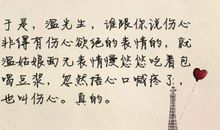 于是，温先生，谁跟你说伤心
非得有伤心欲绝的表情的，就
温姑娘面无表情慢悠悠吃着包
喝豆浆，忽然捂心口喊疼了，
也叫伤心。真的。